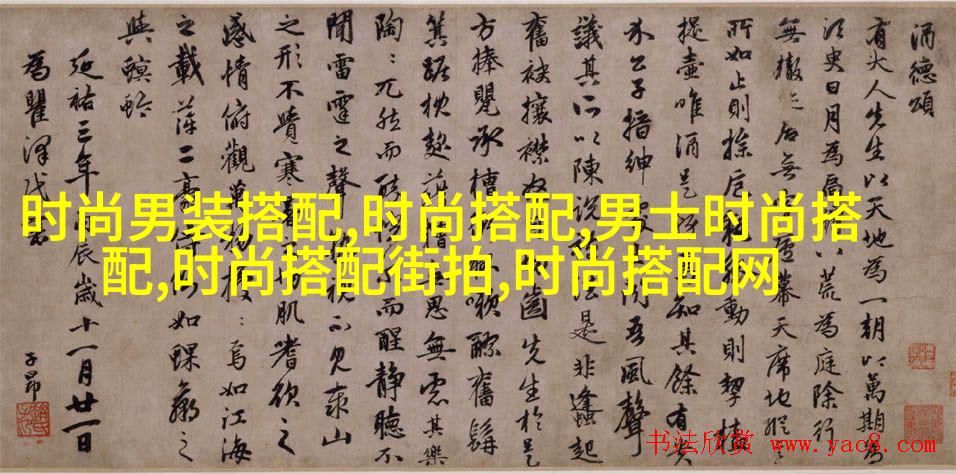 酒德頌
有大人先生以天地為一朝以萬期為
須臾日月為八荒為庭除行
無轍迹居無廬幕天席地縱
所如止則操卮執動則挈榼
提壺唯酒是知其餘有貴
介公子搢紳處聞吾風聲
議其所以陳說禮法是非蠭起
奮袂攘襟先生於是
方捧罌承槽漱醪奮髯
箕踞枕麴藉糟無思無慮其樂
陶〻兀然而醉而醒靜聽不
聞雷霆之聲視不見泰山
之形不覺寒暑之肌嗜欲之
感情俯觀萬物擾〻焉如江海
之載萍二豪侍如蜾蠃之
與螟蛉
延祐三年丙辰歲十一月廿一日
為瞿澤
子昂
时尚男装搭配,时尚搭配,男士时尚搭
配,时尚搭配街拍,时尚搭配网
书法欣赏 www.yac8.com